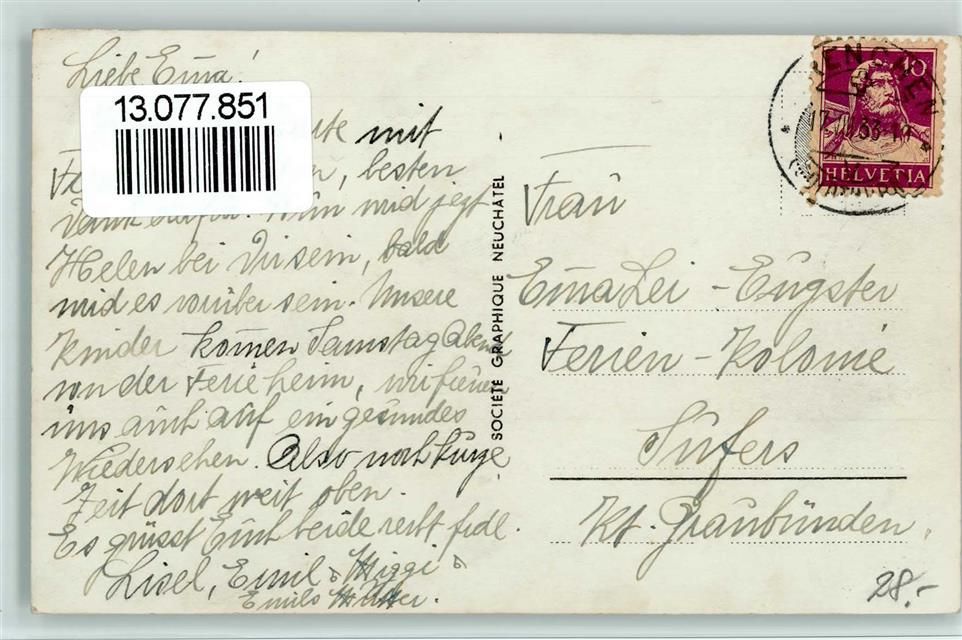 Liebe Emma!
13.077.851
mit
besten
Dank dafür. Nun wird jetzt
Helen bei Dir sein, bald
wird es vorüber sein. Unsere
Kinder kom̄en Samstag Abend
von der Ferieheim, wir freuen
uns auch auf ein gesundes
Wiedersehen. Also noch kurze
Zeit dort weit oben.
Es grüsst Euch beide recht fidel
Lisel, Emil & Miggi &
Emils Mutter.
SOCIÉTÉ GRAPHIQUE NEUCHÂTEL
10
HELVETIA
Frau
Em̄a Lei - Eugster
Ferien - Kolonie
Sufers
Kt. Graubünden.
28.-